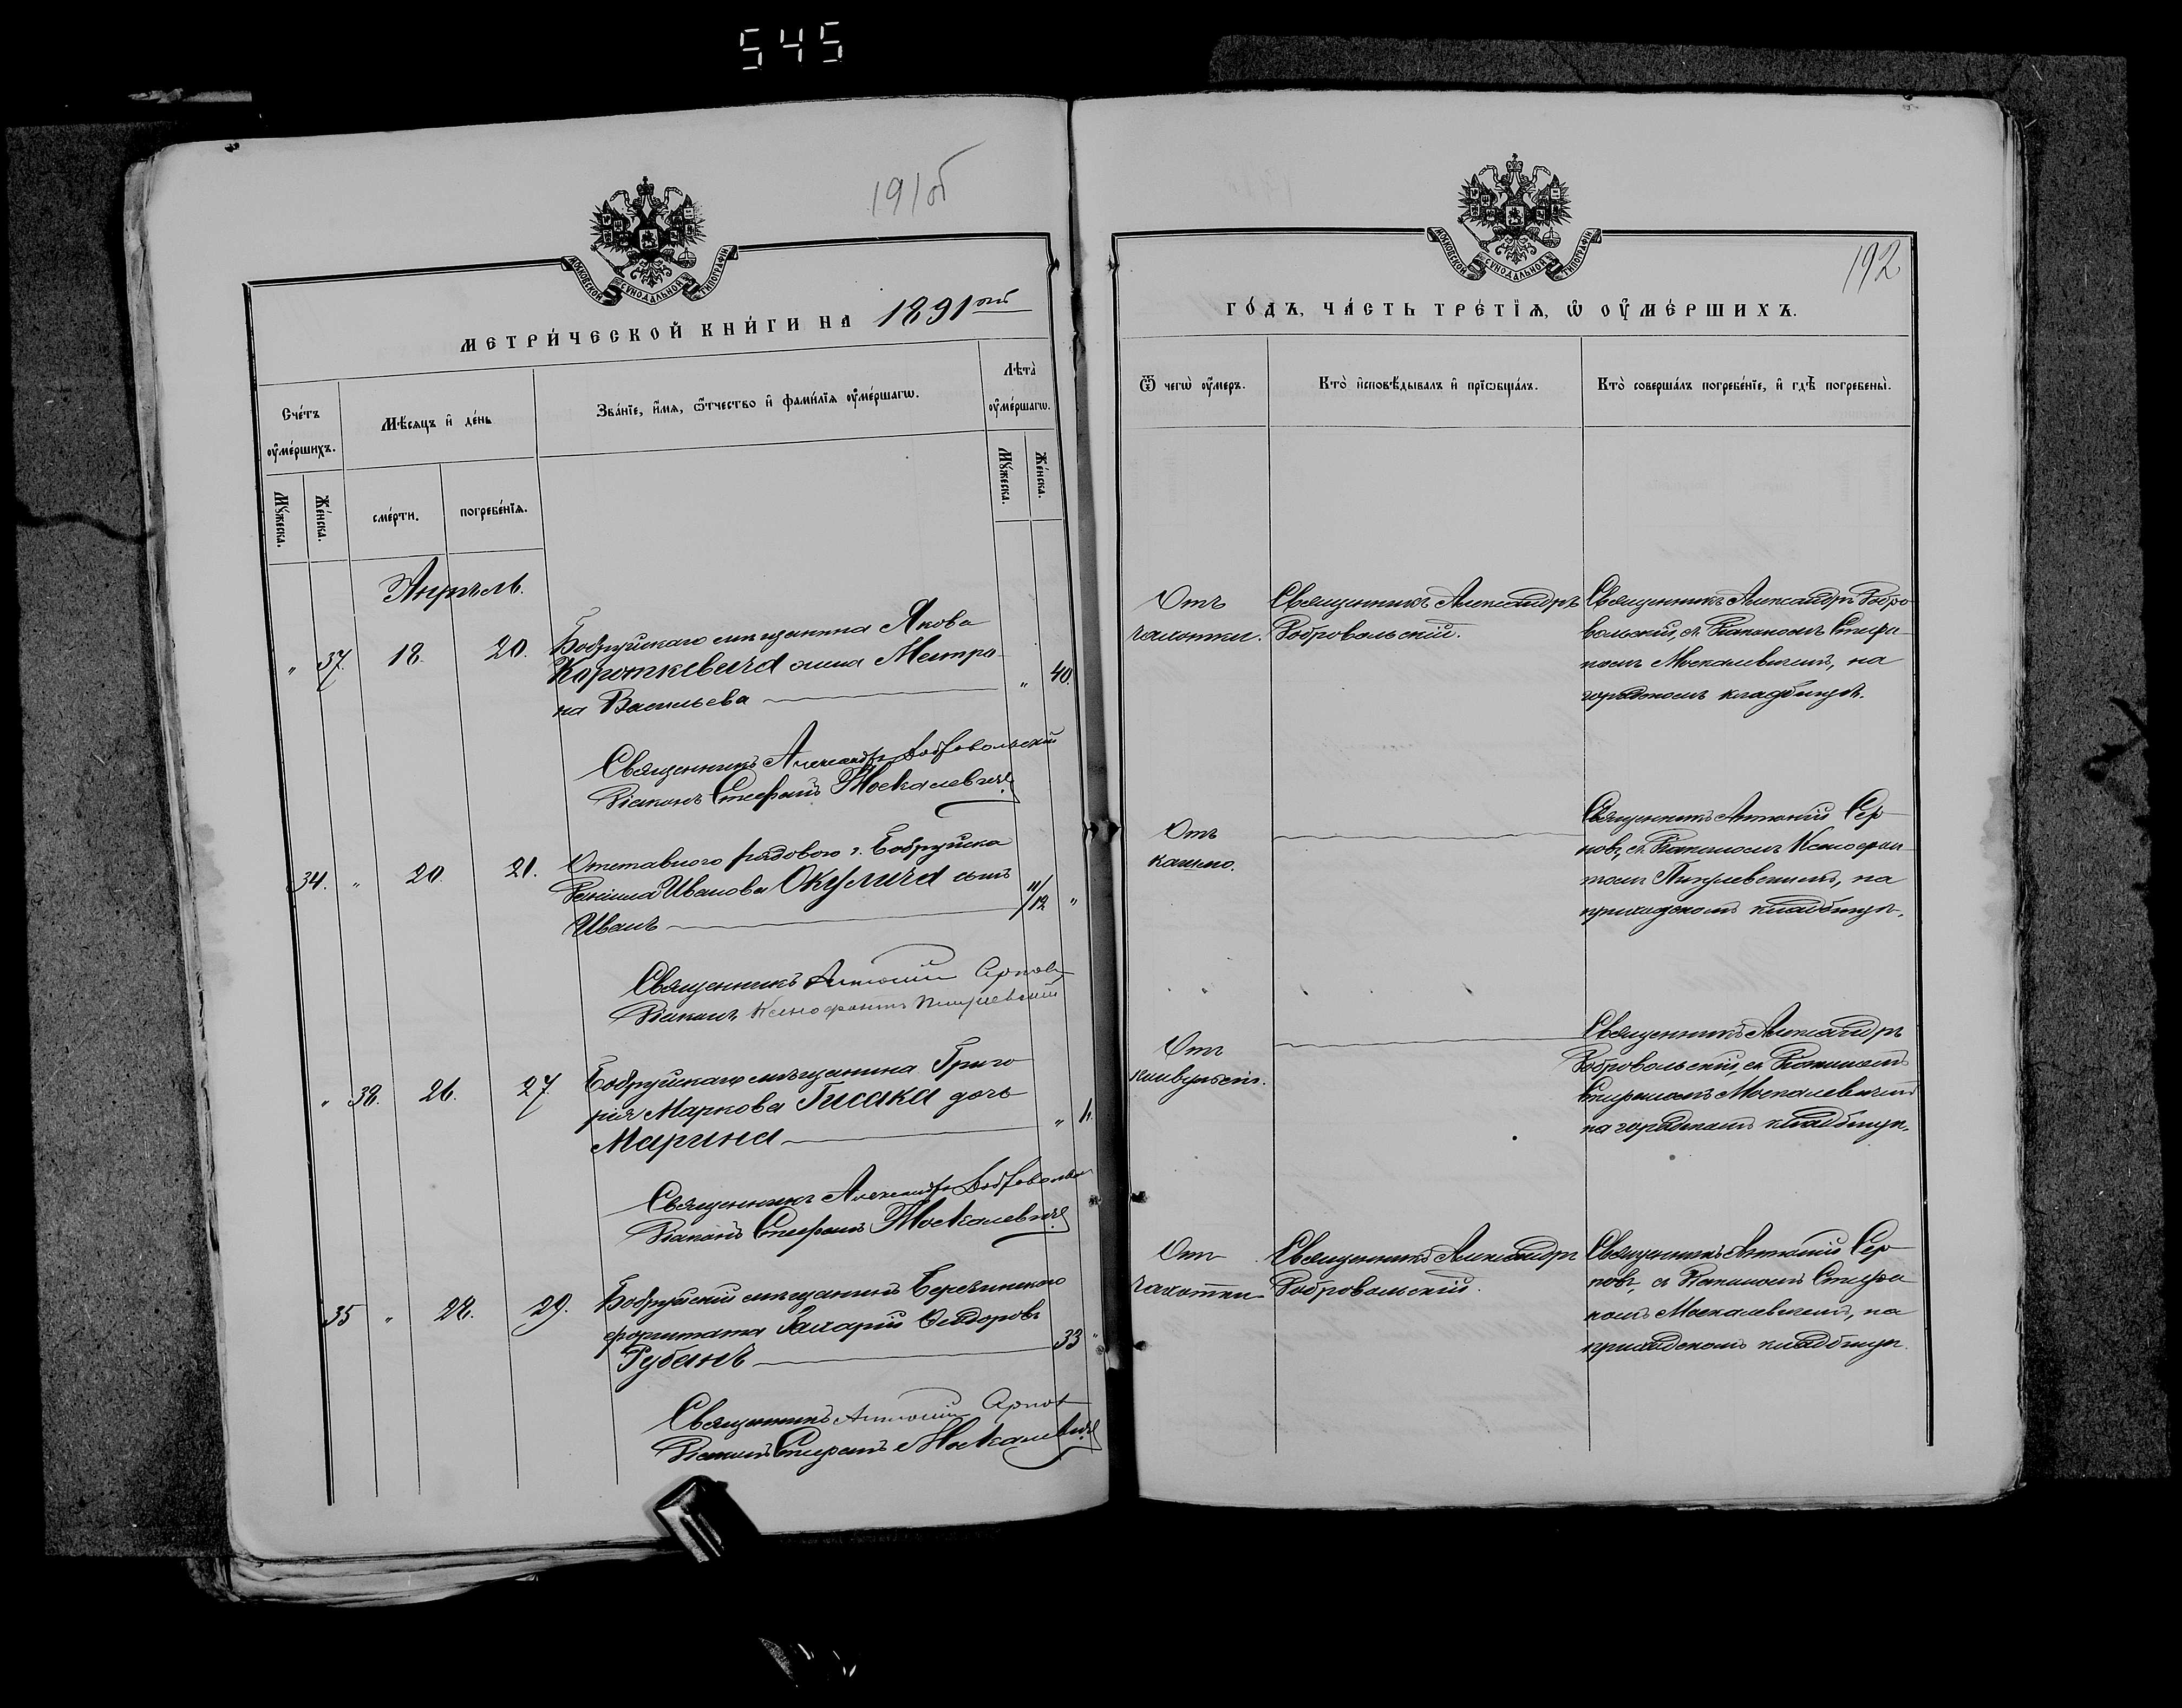 545
191об
МОСКОВСКОЙ СУНОДАЛЬНОЙ ТИПОГРАФІИ
МЕТРИ́ЧЕСКОЙ КНИ́ГИ НА 1891ый
Сче́тъ оу҆ме́ршихъ.
Мѣ́сѧцъ и҆ де́нь
Зва́нїе, и҆́мѧ, ѻ҆́тчество и҆ фами́лїѧ оу҆ме́ршагѡ.
Лѣ́та оу҆ме́ршагѡ.
Мꙋ́жеска.
Же́нска.
сме́рти.
погребе́нїѧ.
Мꙋ́жеска.
Же́нска.
Апрѣль.
" 37. 18. 20. Бобруйскаго мѣщанина Якова
Короткевича жена Матро-
на Васильева " 40.
Священникъ Александръ Добровольскій
Діаконъ Стефанъ Москалевичъ
34. " 20. 21. Отставного рядового г. Бобруйска
Даніила Иванова Окулича сынъ
Иванъ 11/12 "
Священникъ Антоній Серновъ
Діаконъ Ксенофонтъ Пигулевскій
" 38. 26. 27. Бобруйскаго мѣщанина Григо-
рія Маркова Гисака дочь
Марина " 1.
Священникъ Александръ Добровольскій
Діаконъ Стефанъ Москалевичъ
35 " 28. 29. Бобруйскій мѣщанинъ Березинскаго
форштата Захарій Ѳедоровъ
Рубанъ 33 "
Священникъ Антоній Серновъ
Діаконъ Стефанъ Москалевичъ
192
МОСКОВСКОЙ СУНОДАЛЬНОЙ ТИПОГРАФІИ
ГО́ДЪ, ЧА́СТЬ ТРЕ́ТЇѦ, Ѡ҆ ОУ҆МЕ́РШИХЪ.
Ѿ чегѡ̀ оу҆́меръ.
Кто̀ и҆сповѣ́дывалъ и҆ прїѡбща́лъ.
Кто̀ соверша́лъ погребе́нїе, и҆ гдѣ̀ погребены̀.
Отъ
чахотки.
Священникъ Александръ
Добровольскій.
Священникъ Александръ Добро-
вольскій, съ Діакономъ Стефа-
номъ Москалевичемъ, на
городскомъ кладбищѣ.
Отъ
кашлю.
Священникъ Антоній Сер-
новъ, съ Діакономъ Ксенофон-
томъ Пигулевскимъ, на
приходскомъ кладбищѣ.
Отъ
конвульсіи.
Священникъ Александръ
Добровольскій, съ Діакономъ
Стефаномъ Москалевичемъ
на городскомъ кладбищѣ.
Отъ
чахотки
Священникъ Александръ
Добровольскій.
Священникъ Антоній Сер-
новъ, съ Діакономъ Стефа-
номъ Москалевичемъ, на
приходскомъ кладбищѣ.